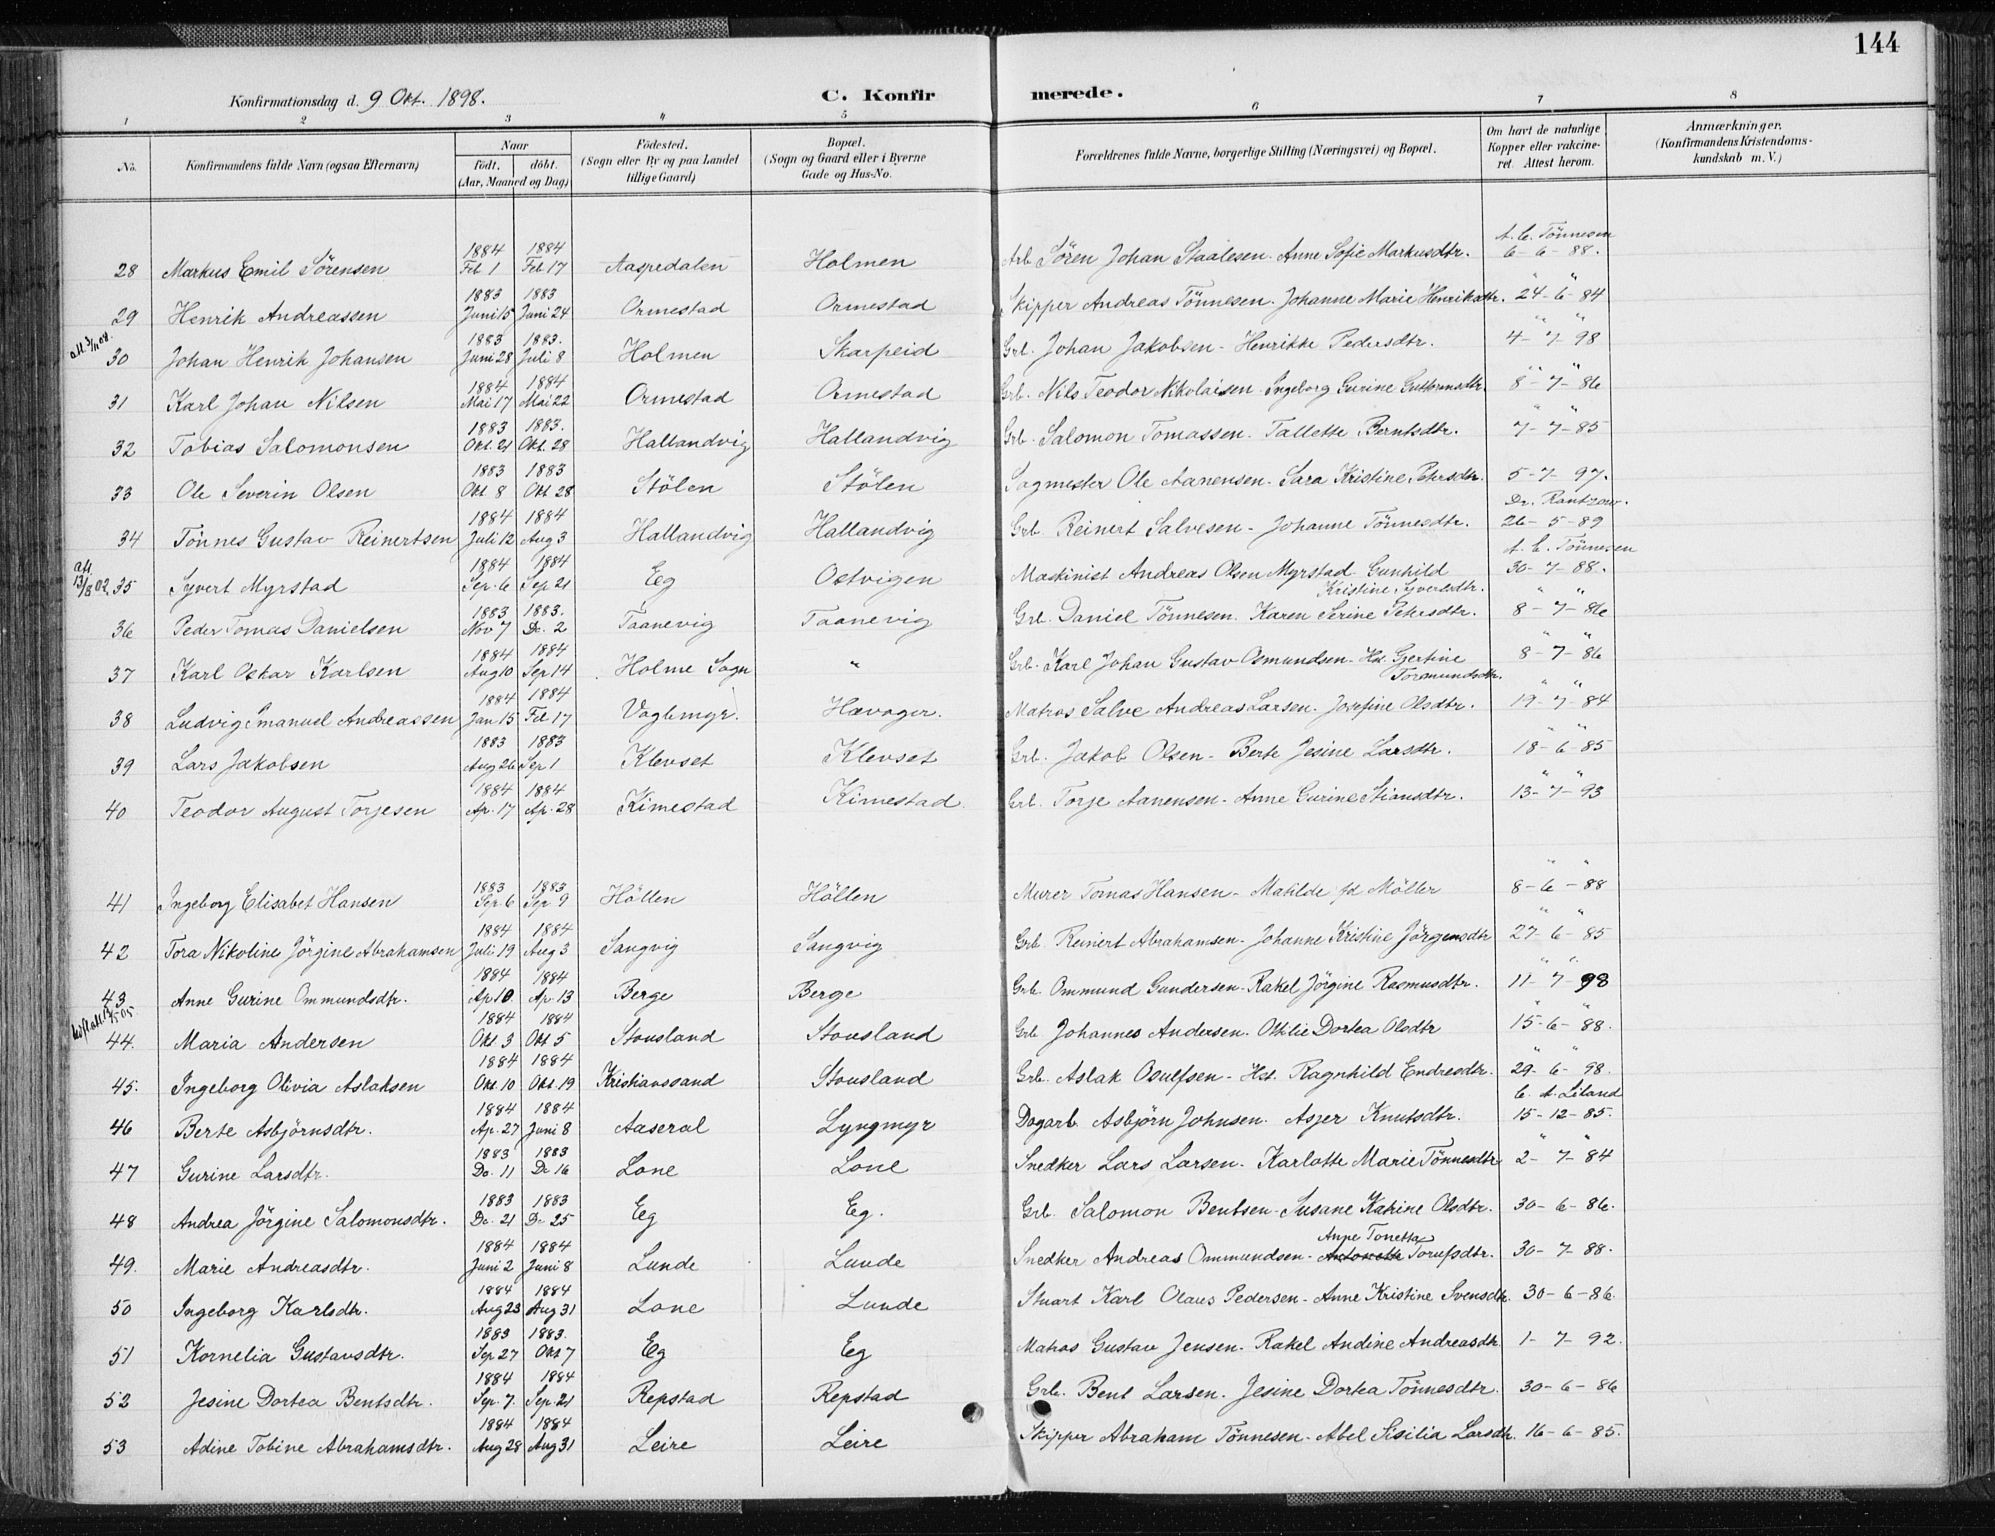 144
Konfirmationsdag d. 9 Okt. 1898. C. Konfirmerede.
1 2 3 4 5 6 7 8
No. Konfirmandens fulde Navn (ogsaa Efternavn) Naar födt, döbt. (Aar, Maaned og Dag) Födested. (Sogn eller By og paa Landet tillige Gaard) Bopæl. (Sogn og Gaard eller i Byerne Gade og Hus-No. Forældrenes fulde Navne, borgerlige Stilling (Næringsvei) og Bopæl. Om havt de naturlige Kopper eller vakcineret. Attest herom. Anmærkninger. (Konfirmandens Kristendomskundskab m. V.)
28 Markus Emil Sörensen 1884 Feb. 1 1884 Feb. 17 Aaspedalen Holmen Arb. Sören Johan Staalesen. Anne Sofie Markusdtr. A. C. Tönnesen 6-6-88.
29 Henrik Andreassen 1883 Juni 15 1883 Juni 24 Ormestad Ormestad Skipper Andreas Tönnesen. Johanne Marie Henriksdtr. " " 24-6-84
30 Johan Henrik Johansen 1883 Juni 28 1883. Juli 8 Holmen Skarpeid Grb. Johan Jakobsen - Henrikke Pedersdtr. " " 4-7-98
31 Karl Johan Nilsen 1884 Mai 17 1884 Mai 22 Ormestad Ormestad Grb. Nils Teodor Nikolaisen. Ingeborg Gurine Guttormsdtr. " " 8-7-86
32 Tobias Salomonsen 1883 Okt. 21 1883. Okt. 28 Hallandvig Hallandvig Grb. Salomon Tomassen. Tallette Berntsdtr. " " 7-7-85
33 Ole Severin Olsen 1883 Okt 8 1883 Okt 28 Stölen Stölen Sagmester Ole Aanensen. Sara Kristine Petersdtr. 5-7-97.
34 Tönnes Gustav Reinertsen 1884 Juli 12 1884 Aug 3 Hallandvig Hallandvig Grb. Reinert Salvesen - Johanne Tönnesdtr. Dr. Rantzow. 26-5-89
att. 13/8 02. 35 Syvert Myrstad 1884 Sep. 6 1884 Sep 21 Eg Ostvigen Maskinist Andreas Olsen Myrstad. Gunhild Kristine Syvertsdtr. A. C. Tönnesen 30-7-88.
36 Peder Tomas Danielsen 1883 Nov 7 1883. De. 2 Taanevig Taanevig Grb. Daniel Tönnesen. Karen Serine Petersdtr. " " 8-7-86
37 Karl Oskar Karlsen 1884 Aug 10 1884 Sep 14 Holme Sogn " Grb. Karl Johan Gustav Osmundsen - Hst. Gjertine Tormundsdtr. 8-7-86
38 Ludvig Emanuel Andreassen 1884 Jan 15 1884 Feb 17 Vaglemyr. Hævager. Matros Salve Andreas Larsen. Josefine Olsdtr. " " 19-7-84
39 Lars Jakobsen 1883 Aug 26 1883 Sep 1 Klevset Klevset Grb. Jakob Olsen - Berte Jesine Larsdtr. " " 18-6-85
40 Teodor August Torjesen 1884 Ap. 17 1884 Ap. 28 Kimestad Kimestad Grb. Torje Aanensen - Anne Gurine Stiansdtr. " " 13-7-93
41 Ingeborg Elisabet Hansen 1883 Sep. 6 1883 Sep 9 Höllen Höllen Murer Tomas Hansen - Matilde fd Möller " " 8-6-88
42 Tora Nikoline Jörgine Abrahamsen 1884 Juli 19 1884 Aug 3 Sangvig Sangvig Grb. Reinert Abrahamsen - Johanne Kristine Jörgensdtr " " 27-6-85
43 Anne Gurine Ommundsdtr. 1884 Ap 10 1884 Ap. 13 Berge Berge Grb. Ommund Gundersen - Rakel Jörgine Rasmusdtr. " " 11-7-98
44. Maria Andersen 1884 Okt. 3 1884 Okt 5 Stousland Stousland Grb Johannes Andersen. Ottilie Dortea Olsdtr " " 15-6-88.
45. Ingeborg Olivia Aslaksen 1884 Okt. 10 1884 Okt. 19 Kristianssand Stousland Grb. Aslak Osulfsen - Hst. Ragnhild Endresdtr. " " 29-6-98.
46 Berte Asbjörnsdtr. 1884 Ap. 27 1884 Juni 8 Aaseral Lyngmyr Dagarb. Asbjörn Johnsen. Asjer Knutsdtr. C. A. Liland 15-12-85.
47 Gurine Larsdtr. 1883 De. 11 1883 De 16 Lone Lone Snedker Lars Larsen - Karlotte Marie Tönnesdtr " " 2-7-84
48 Andrea Jörgine Salomonsdtr. 1883 De. 21 1883 De 25 Eg Eg. Grb. Salomon Bentsen - Susane Katrine Olsdtr. 30-6-86.
49. Marie Andreasdtr. 1884 Juni 2 1884 Juni 8 Lunde Lunde Snedker Andreas Ommundsen - Anne Tonetta Antonette Torufsdtr. 30-7-88.
50 Ingeborg Karlsdtr. 1884 Aug 23 1884 Aug 31 Lone Lunde Stuart Karl Olaus Pedersen - Anne Kristine Svensdtr. 30-6-86.
51 Kornelia Gustavsdtr. 1883 Sep 27 1883. Okt 7 Eg Eg Matros Gustav Jensen - Rakel Andine Andreasdtr. 1-7-92.
52 Jesine Dortea Bentsdtr. 1884 Sep. 7. 1884 Sep. 21 Repstad Repstad Grb. Bent Larsen. Jesine Dortea Tönnesdtr. 30-6-86
53 Adine Tobine Abrahamsdtr. 1884 Aug 28 1884 Aug 31 Leire Leire Skipper Abraham Tönnesen - Abel Sisilia Larsdtr. 16-6-85.